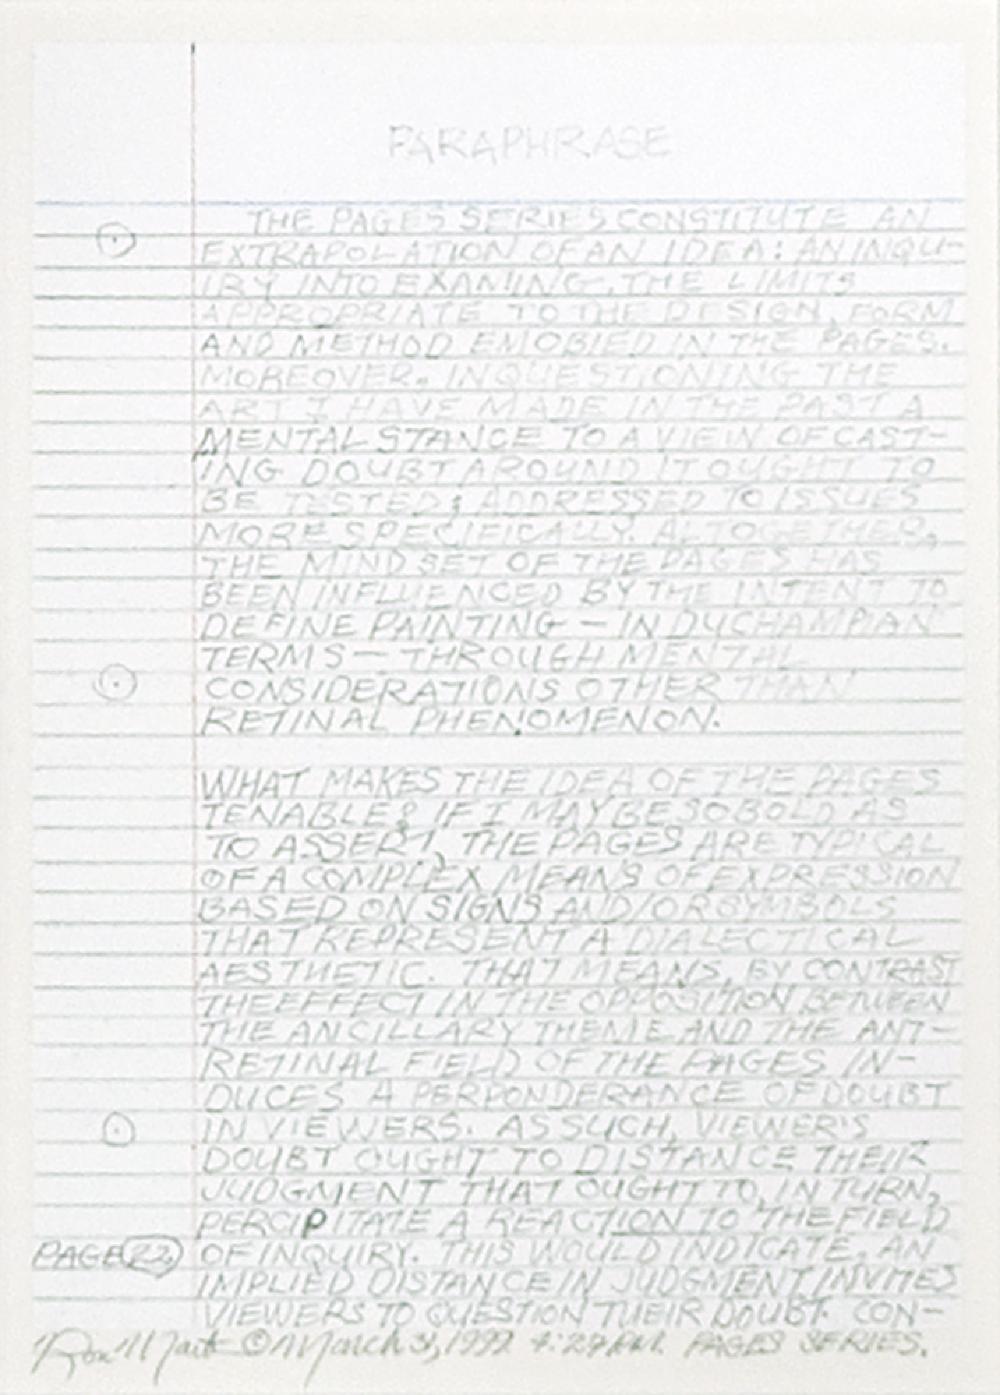 PARAPHRASE
THE PAGES SERIES CONSTITUTE AN
EXTRAPOLATION OF AN IDEA: AN INQU-
IRY INTO EXAMING, THE LIMITS
APPROPRIATE TO THE DESIGN, FORM
AND METHOD EMOBIED IN THE PAGES.
MOREOVER, IN QUESTIONING THE
ART I HAVE MADE IN THE PAST A
MENTAL STANCE TO A VIEW OF CAST-
ING DOUBT AROUND IT OUGHT TO
BE TESTED; ADDRESSED TO ISSUES
MORE SPECIFICALLY. ALTOGETHER,
THE MINDSET OF THE PAGES HAS
BEEN INFLUENCED BY THE INTENT TO
DEFINE PAINTING — IN DUCHAMPIAN
TERMS — THROUGH MENTAL
CONSIDERATIONS OTHER THAN
RETINAL PHENOMENON.
WHAT MAKES THE IDEA OF THE PAGES
TENABLE? IF I MAY BE SO BOLD AS
TO ASSERT, THE PAGES ARE TYPICAL
OF A COMPLEX MEANS OF EXPRESSION
BASED ON SIGNS AND/OR SYMBOLS
THAT REPRESENT A DIALECTICAL
AESTHETIC. THAT MEANS, BY CONTRAST
THE EFFECT IN THE OPPOSITION BETWEEN
THE ANCILLARY THEME AND THE ANT-
RETINAL FIELD OF THE PAGES IN-
DUCES A PERPONDERANCE OF DOUBT
IN VIEWERS. AS SUCH, VIEWER'S
DOUBT OUGHT TO DISTANCE THEIR
JUDGMENT THAT OUGHT TO, IN TURN,
PERCIPITATE A REACTION TO THE FIELD
PAGE 22 OF INQUIRY. THIS WOULD INDICATE, AN
IMPLIED DISTANCE IN JUDGMENT INVITES
VIEWERS TO QUESTION THEIR DOUBT. CON-
© March 31, 1999 4:29 P.M. PAGES SERIES.